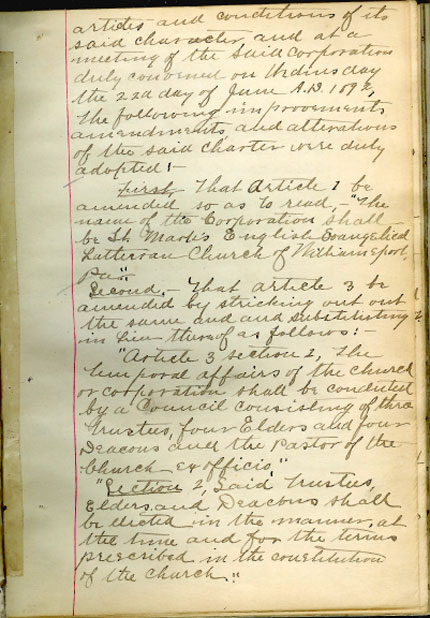 articles and conditions of its
said character and at a
meeting of the said corporation
duly convened on Wednesday
the 22d day of June A.D. 1892,
the following improvements
amendments, and alterations
of the said charter were duly
adopted!-
First That Article 1 be
amended so as to read,- "The
name of the Corporation shall
be St. Mark's English Evangelical
Lutheran Church of Williamsport
Pa".
Second.- That article 3 be
amended by stricking out out
the same and and substituting
in lieu thereof as follows:-
"Article 3 section 1, The
temporal affairs of the church
or corporation shall be conducted
by a Council consisting of three
Trustees, four Elders and four
Deacons and the Pastor of the
Church - Ex officio."
"Section 2, Said Trustees,
Elders, and Deacons shall
be elected in the manner, at
the time and for the terms
prescribed in the constitution
of the church".